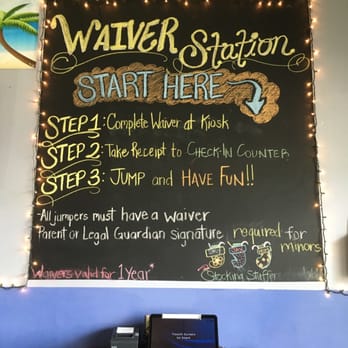 WAIVER Station
START HERE
STEP 1: Complete Waiver at Kiosk
STEP 2: Take Receipt to CHECK-IN COUNTER
STEP 3: JUMP and HAVE FUN!!
-All jumpers must have a waiver
Parent or Legal Guardian signature required for minors
Waivers valid for 1 year*
Stocking Stuffers